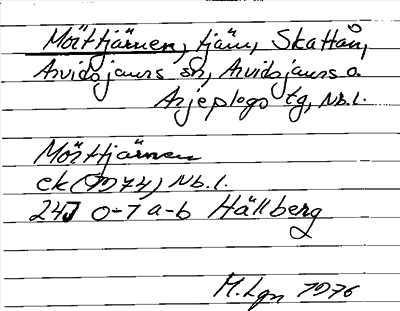 Mörttjärnen, tjärn, Skattån,
Arvidsjaurs sn, Arvidsjaurs o.
Arjeplogs tg, Nb.l.
Mörttjärnen
ek (1974) Nb.l.
24J 0-1 a-b Hällberg
M.Lgn 1976